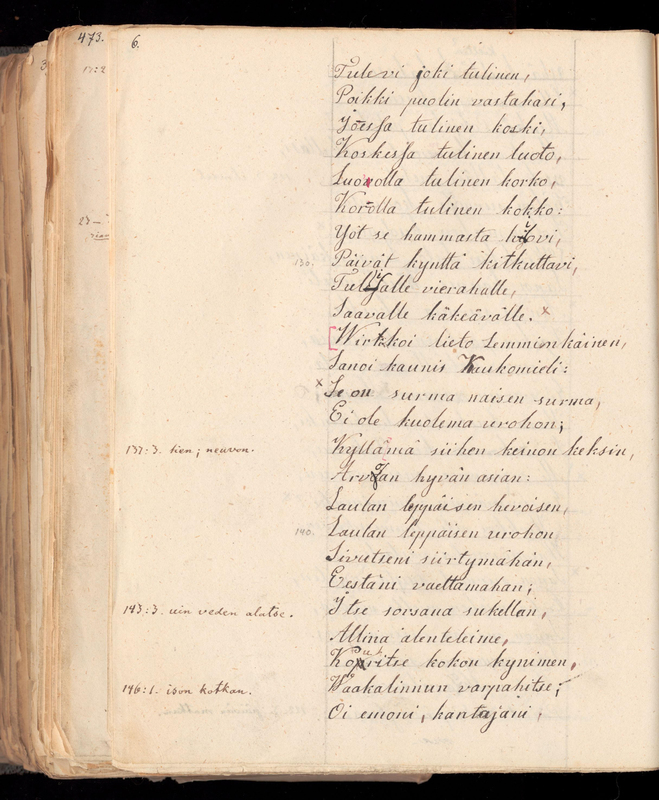 473.
6.
Tulevi joki tulinen,
Poikki puolin vastahasi,
Joessa tulinen koski,
Koskessa tulinen luoto,
Luovolla tulinen korko,
Korolla tulinen kokko:
Yöt se hammasta hiovi,
130. Päivät kynttä kitkuttavi,
Tulijalle vierahalle,
Saavalle käkeävälle. x
[Wirkkoi lieto Lemminkäinen,
Sanoi kaunis Kaukomieli:
x Se on surma naisen surma,
Ei ole kuolema urohon;
137:3. tien; neuvon.
Kyllämä siihen keinon keksin,
Arvoan hyvän asian:
Laulan leppäisen hevoisen,
140. Laulan leppäisen urohon
Sivutseni siirtymähän,
Eestäni vaeltamahan;
143:3. uin veden alatse.
Itse sorsana sukellan,
Allina alenteleime,
Kouritse kokon kynimen,
146:1. ison kotkan.
Waakalinnun varpahitse;
Oi emoni, kantajani,